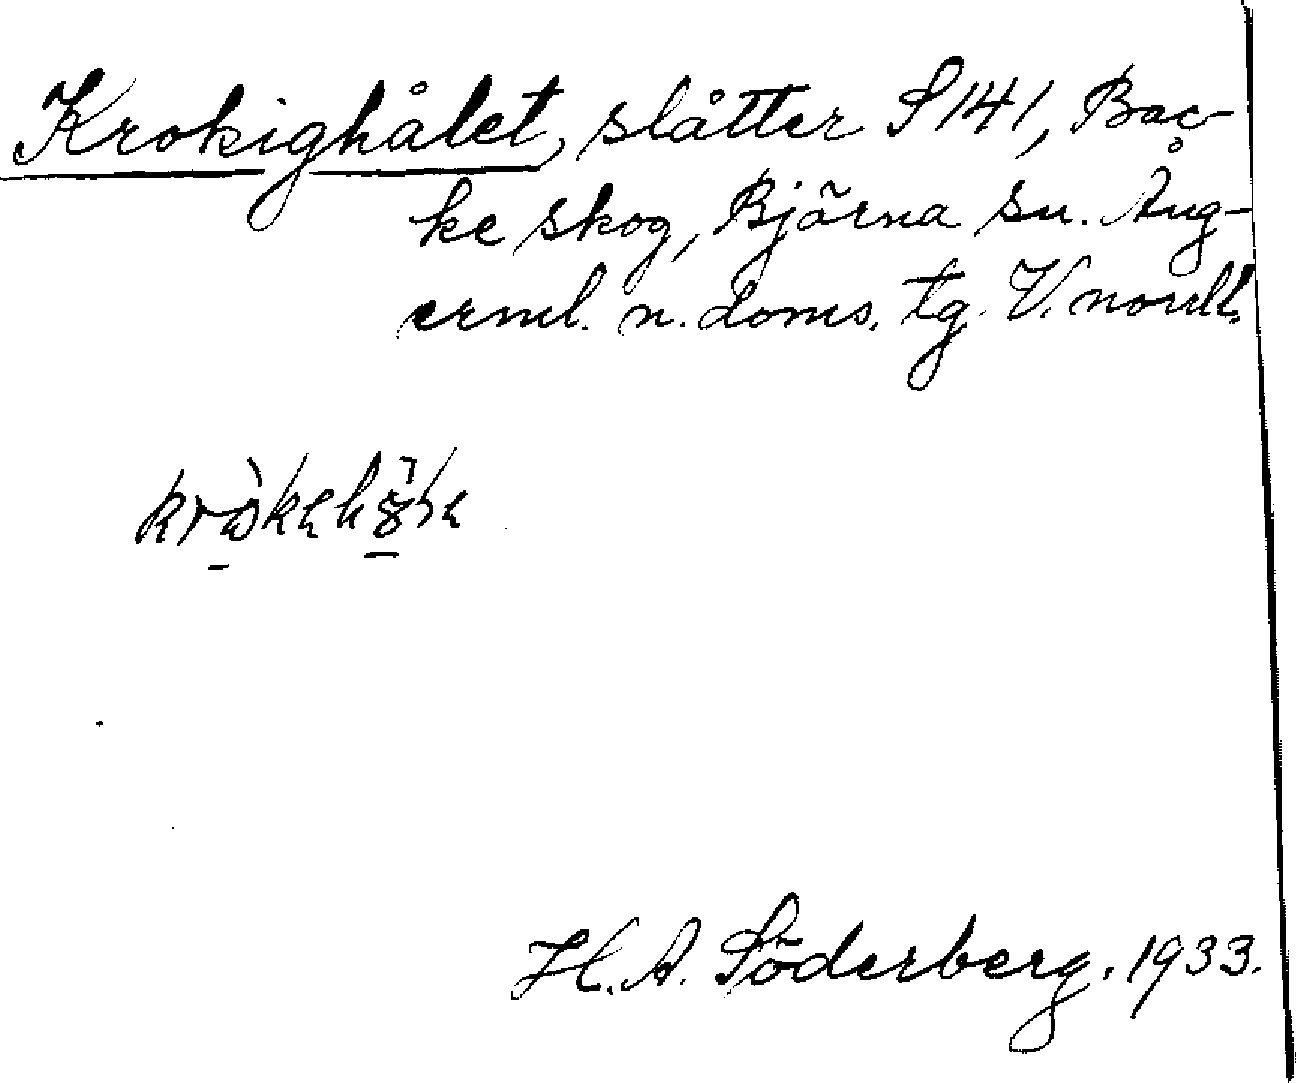 Krokighålet, slåtter S141, Bac-
ke skog, Björna sn. Ång-
erml. n. doms. tg. V. norrl.
H. A. Söderberg. 1933.